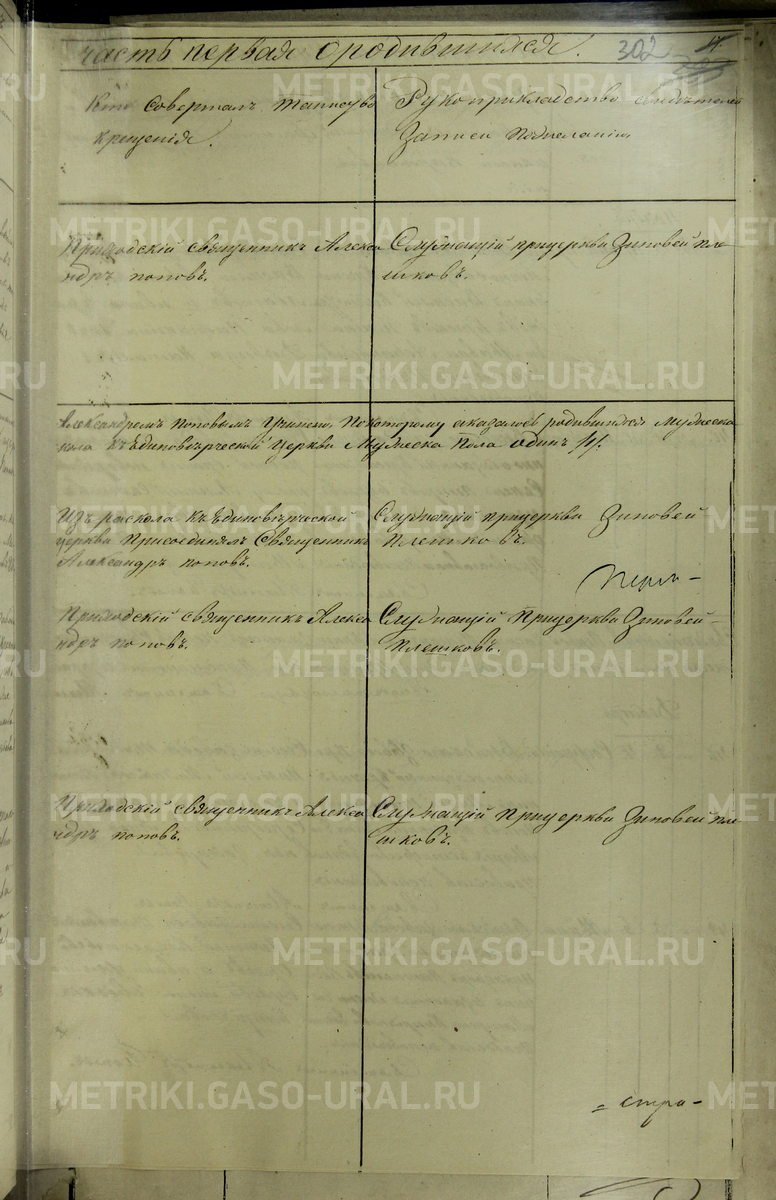 часть первая о родившихся.
302
17
Кто совершалъ таинство
крещенія.
Рукоприкладство свидѣтелей
Записи по желанію
Приходскій священникъ Алекса
ндръ поповъ.
Служащій прицеркви Зиновей пле
шковъ.
Александромъ поповымъ Покоторому оказалось родившихся Мужеска
пола къ Единовѣрческой церкви Мужеска пола одинъ /1/.
Изъ раскола къ Единовѣрческой
церкви Присоединялъ Священникъ
Александръ поповъ.
Служащій прицеркви Зиновей
Плешковъ.
Приходскій священникъ Алекса
ндръ поповъ.
Служащій Прицеркви Зиновей
Плешковъ.
Приходскій священникъ Алекса
ндръ поповъ.
Служащій Прицеркви Зиновей пле
шковъ.
= стра -
METRIKI.GASO-URAL.RU